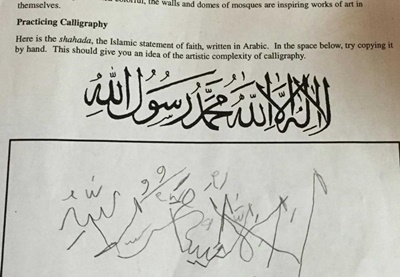 colorful, the walls and domes of mosques are inspiring works of art in
themselves.
Practicing Calligraphy
Here is the shahada, the Islamic statement of faith, written in Arabic. In the space below, try copying it
by hand. This should give you an idea of the artistic complexity of calligraphy.
لا إله إلا الله محمد رسول الله